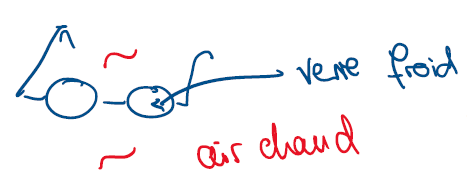 verre froid
air chaud